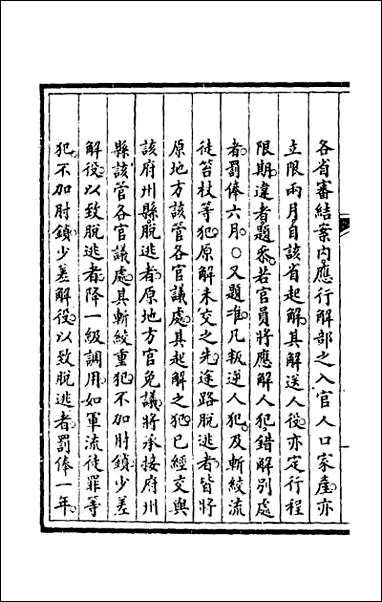 各省審結案內應行解部之入官人口家產亦
立限兩月自該省起解其解送人役亦定行程
限期違者題叅若官員將應解人犯錯解別處
者罰俸六月○又題准凡叛逆人犯及斬絞流
徒笞杖等犯原解未交之先途路脫逃者皆將
原地方該管各官議處其起解之犯已經交與
該府州縣脫逃者原地方官免議將承接府州
縣該管各官議處其斬絞重犯不加肘鎖少差
解役以致脫逃者降一級調用如軍流徒罪等
犯不加肘鎖少差解役以致脫逃者罰俸一年